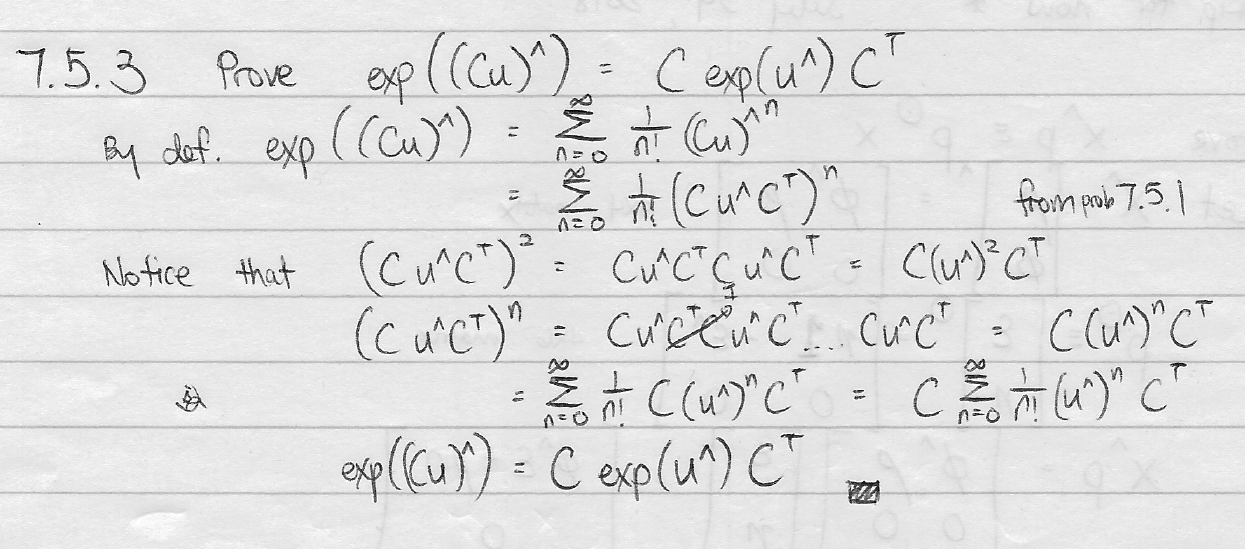 7.5.3 Prove exp((Cu)^) = C exp(u^) Cᵀ
By def. exp((Cu)^) = ∑_{n=0}^{∞} 1/n! (Cu)^ⁿ
= ∑_{n=0}^{∞} 1/n! (Cu^Cᵀ)ⁿ from prob 7.5.1
Notice that (Cu^Cᵀ)² = Cu^CᵀCu^Cᵀ = C(u^)²Cᵀ
(Cu^Cᵀ)ⁿ = Cu^CᵀCu^Cᵀ.... Cu^Cᵀ = C(u^)ⁿCᵀ
= ∑_{n=0}^{∞} 1/n! C(u^)ⁿCᵀ = C ∑_{n=0}^{∞} 1/n! (u^)ⁿ Cᵀ
exp((Cu)^) = C exp(u^) Cᵀ